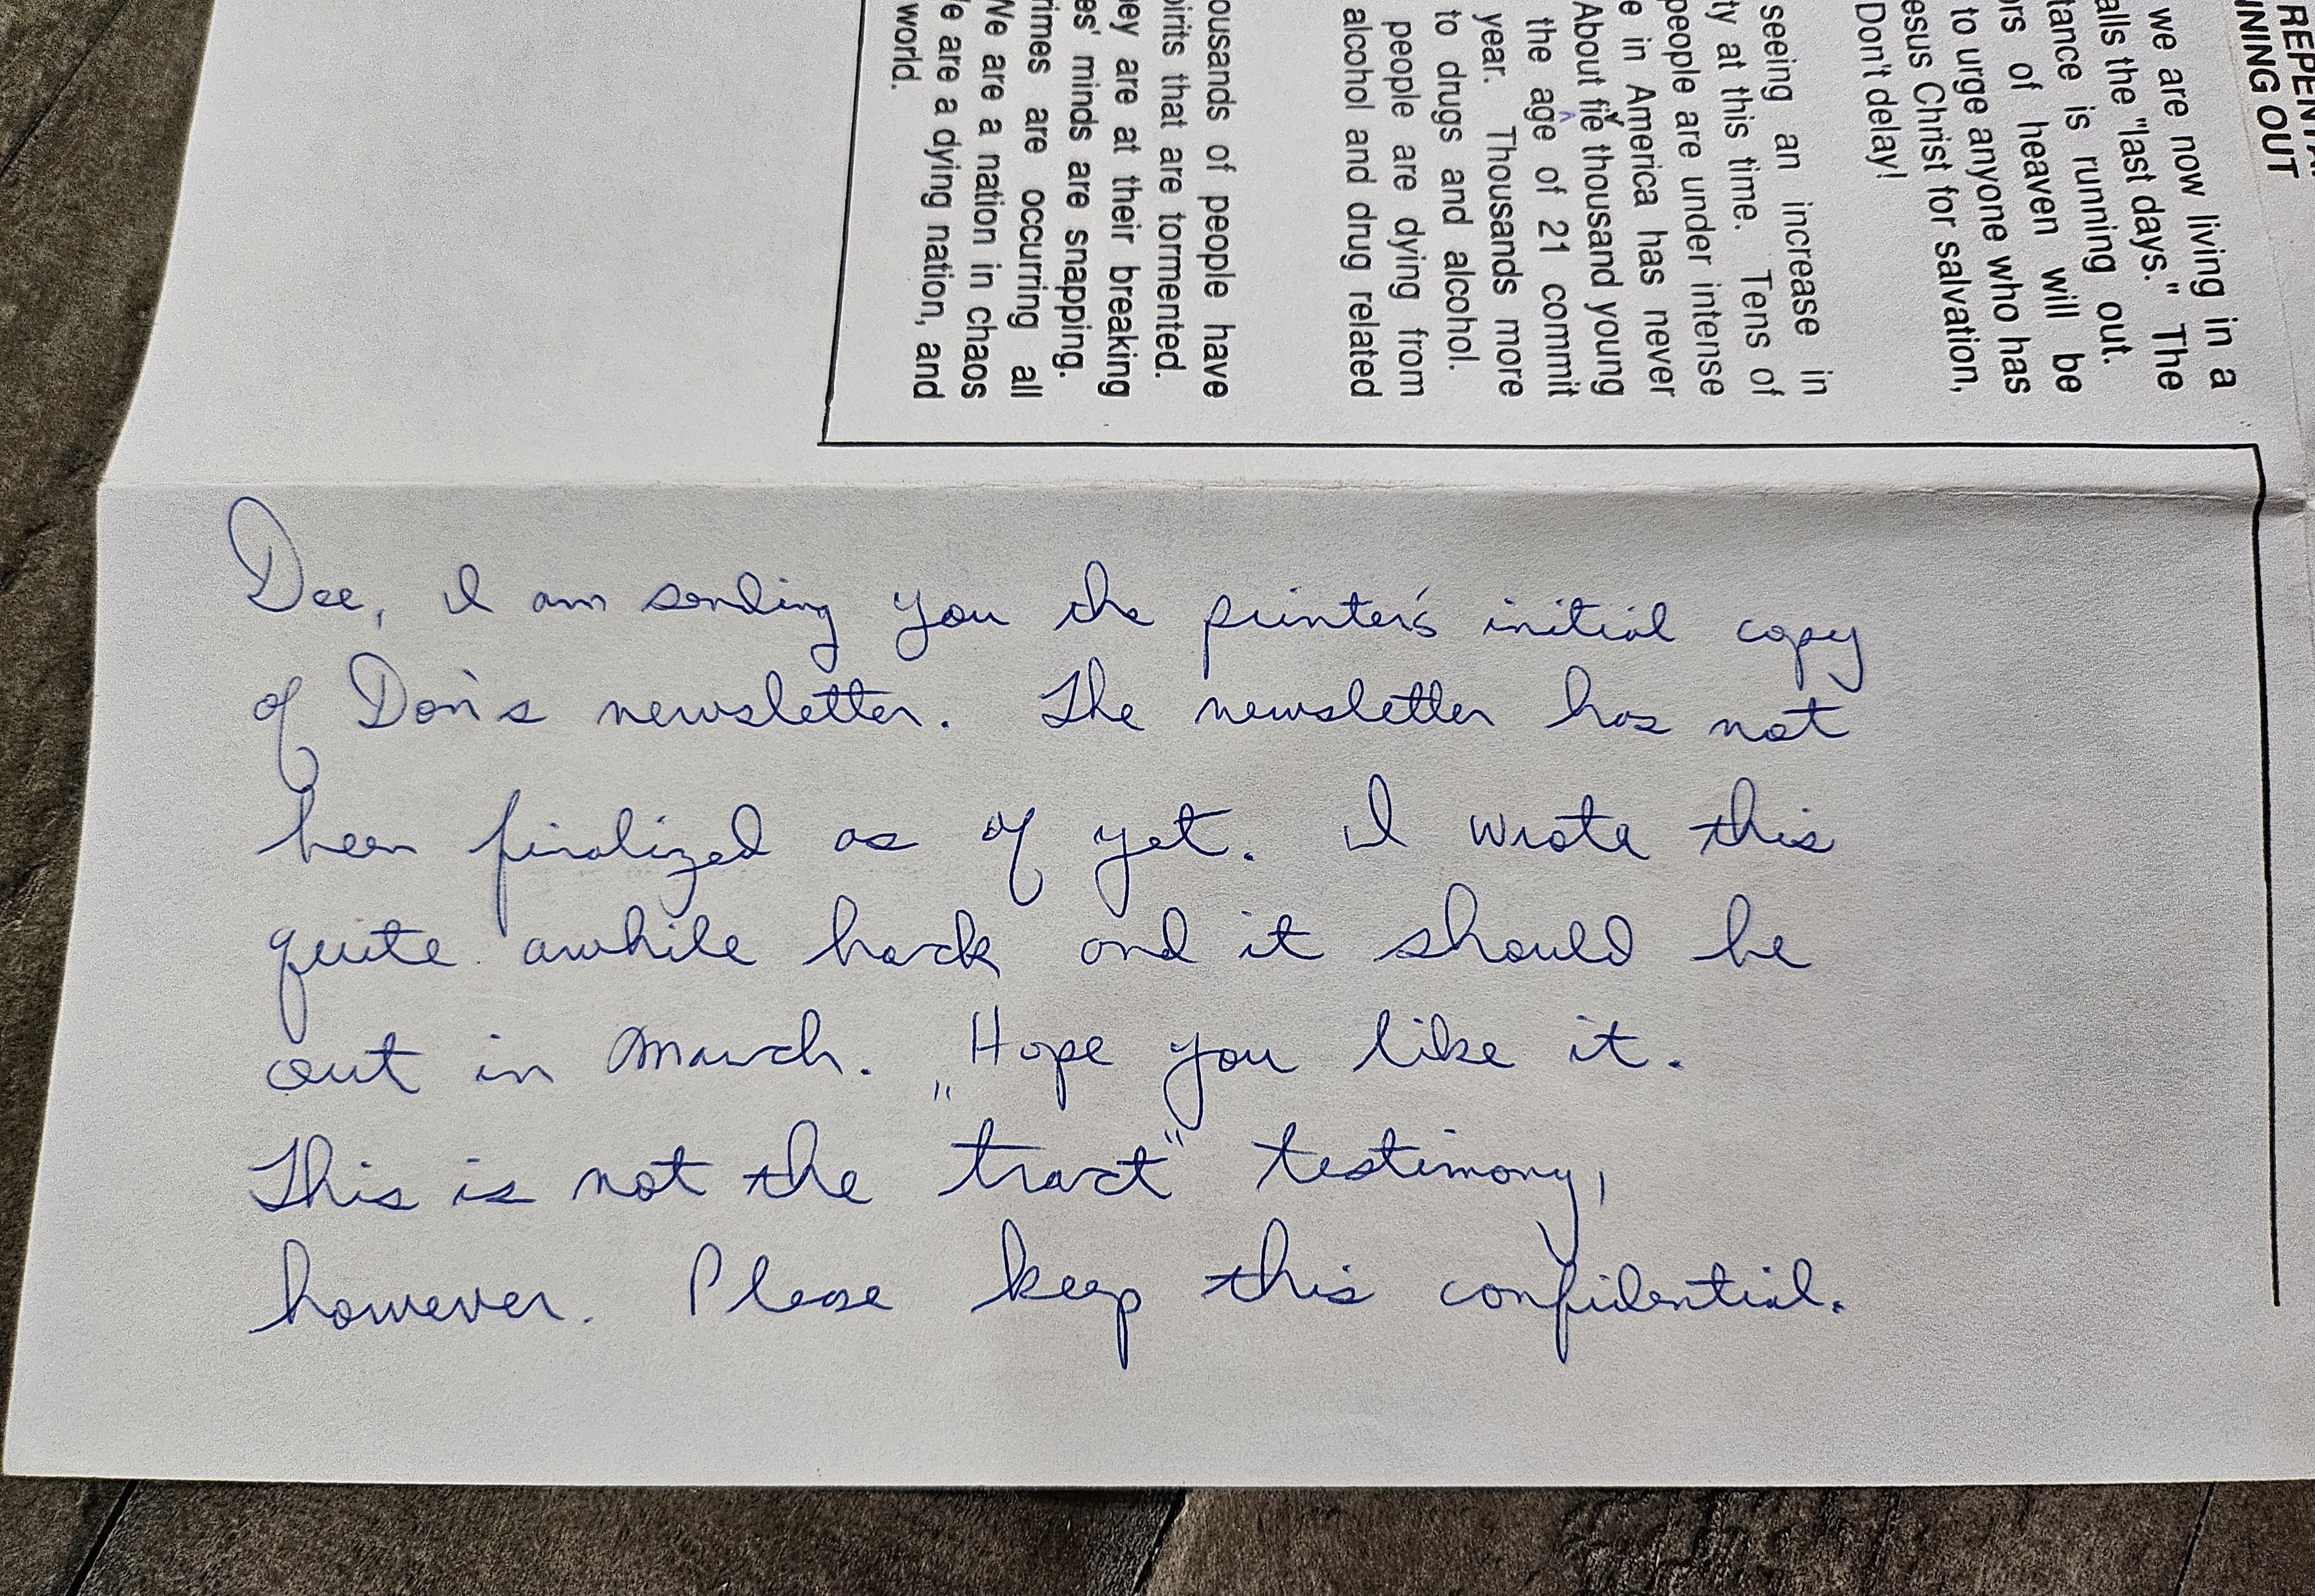 Dee, I am sending you the printer's initial copy
of Don's newsletter. The newsletter has not
been finalized as of yet. I wrote this
quite awhile back and it should be
out in March. "Hope you like it.
This is not the "tract" testimony,
however. Please keep this confidential.
NING OUT
we are now living in a
alls the "last days." The
tance is running out.
rs of heaven will be
to urge anyone who has
esus Christ for salvation,
Don't delay!
seeing an increase in
ty at this time. Tens of
people are under intense
e in America has never
About fie thousand young
v
the age of 21 commit
year. Thousands more
to drugs and alcohol.
people are dying from
alcohol and drug related
ousands of people have
pirits that are tormented.
ey are at their breaking
es' minds are snapping.
rimes are occurring all
We are a nation in chaos
e are a dying nation, and
world.